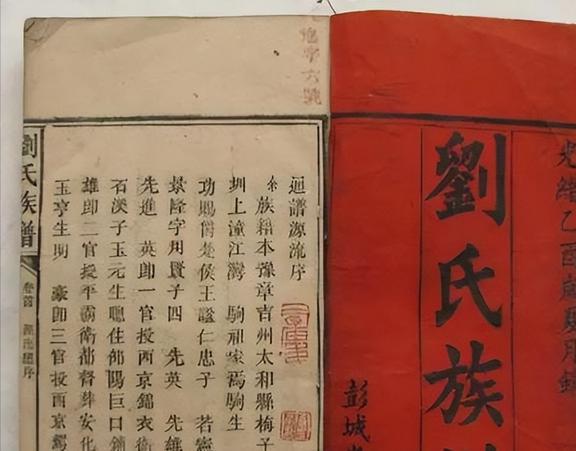 光緒乙酉歲夏月鐫
劉氏族
彭城堂
字六號
迴譜源流序
余族籍本豫章吉州太和縣梅子
圳上潼江灣 駒祖家焉駒生
功賜爵楚侯王諡仁忠子 若
景隆字用賢子四 先英 先雄
先進 英即一官授西京錦衣衛
石溪子玉元生聰住邵陽巨口鋪
雄即二官授平霸衛都督葬安化
玉亨生明 豪即三官授西京
劉氏族譜
卷首 源流序